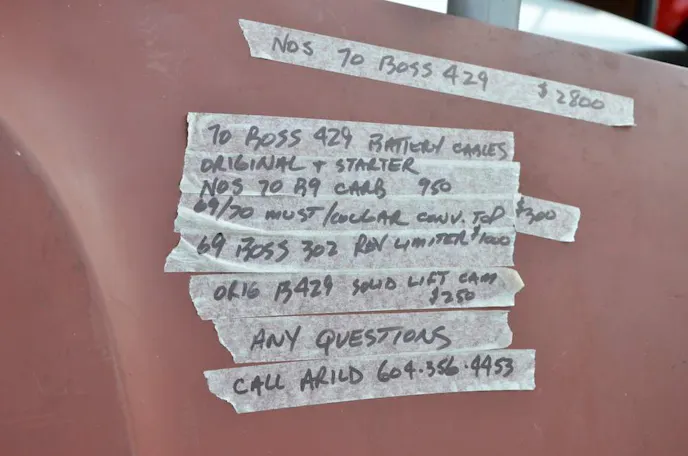 NOS 70 BOSS 429 $2800
70 BOSS 429 BATTERY CABLES
ORIGINAL + STARTER
NOS 70 B9 CARB 950
69/70 MUST/COUGAR CONV. TOP $300
69 BOSS 302 REV LIMITER $1000
ORIG B429 SOLID LIFT CAM
$250
ANY QUESTIONS
CALL ARILD 604.356.4453